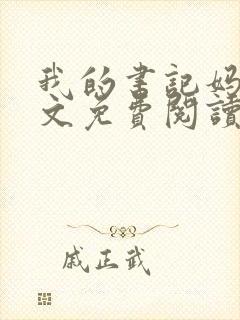 我的書記妈
文免費閱讀
戚正武